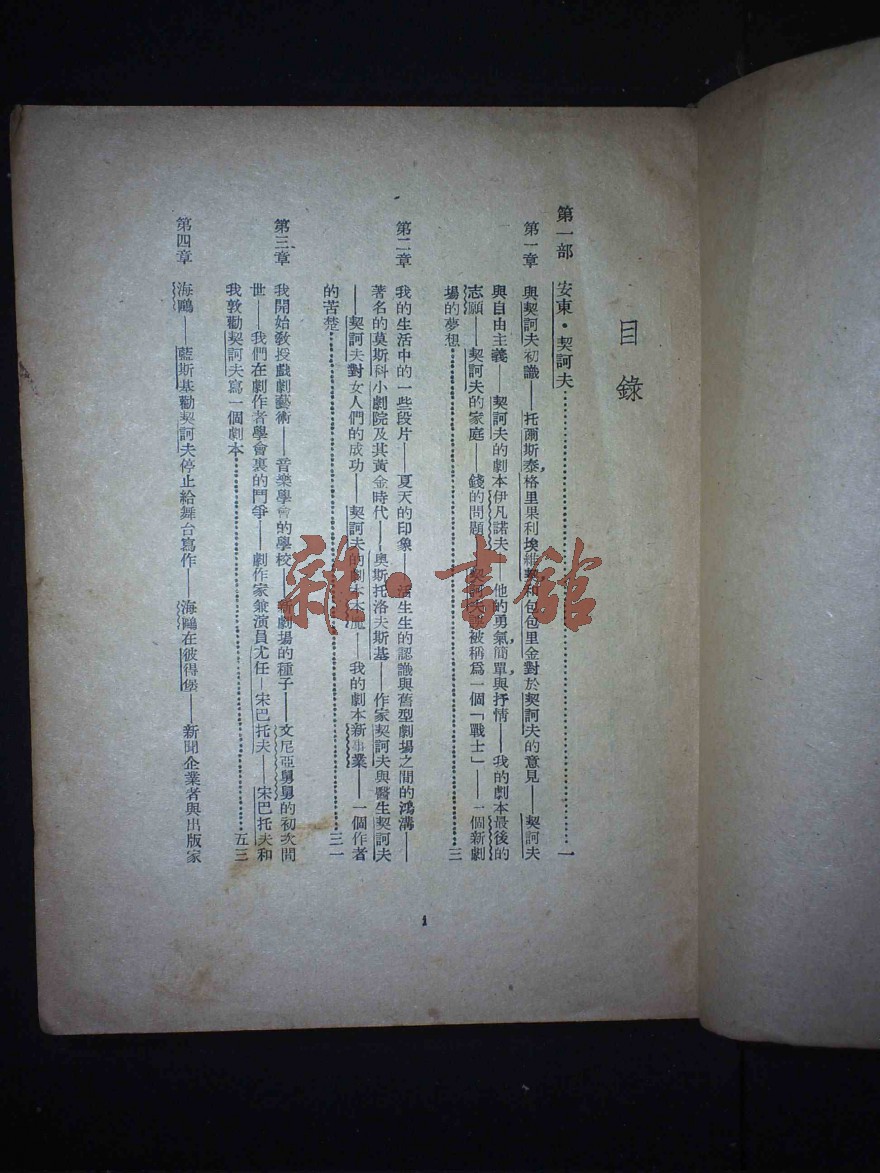 目錄
第一部 安東·契訶夫……一
第一章 與契訶夫初識——托爾斯泰，格里果利埃維契和包包里金對於契訶夫的意見——契訶夫
與自由主義——契訶夫的劇本伊凡諾夫——他的勇氣，簡單，與抒情——我的劇本最後的
志願——契訶夫的家庭——錢的問題——契訶夫被稱爲一個「戰士」——一個新劇
場的夢想……三
第二章 我的生活中的一些段片——夏天的印象——活生生的認識與舊型劇場之間的鴻溝——
著名的莫斯科小劇院及其黃金時代——奧斯托洛夫斯基——作家契訶夫與醫生契訶夫
——契訶夫對女人們的成功——契訶夫的劇本木魔——我的劇本新事業——一個作者
的苦楚……三一
第三章 我開始敎授戲劇藝術——音樂學會的學校——新劇場的種子——文尼亞舅舅的初次問
世——我們在劇作者學會裏的鬥爭——劇作家兼演員尤任—宋巴托夫——宋巴托夫和
我敦勸契訶夫寫一個劇本……五三
第四章 海鷗——藍斯基勸契訶夫停止給舞台寫作——海鷗在彼得堡——新聞企業者與出版家
1
雜·書館